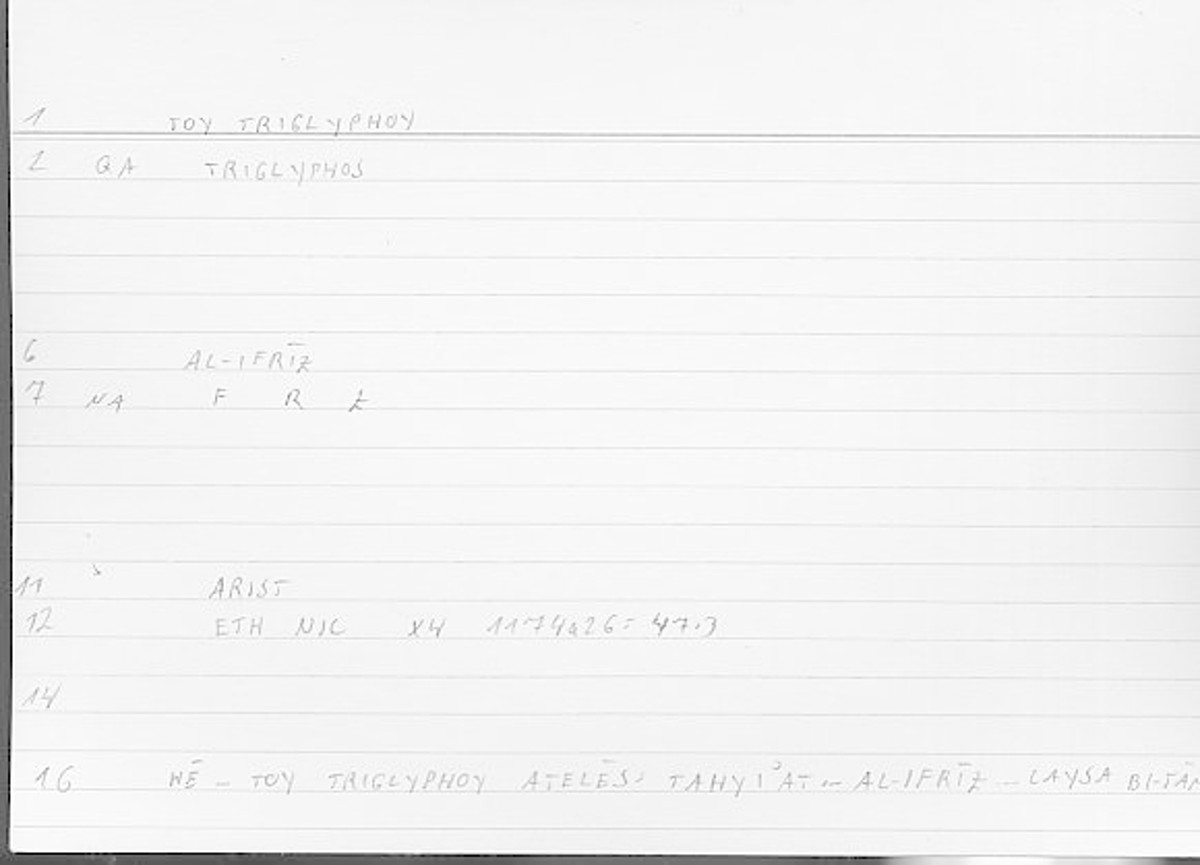 1 TOY TRIGLYPHOY
2 QA TRIGLYPHOS
6 AL-IFRĪZ
7 NA F R Z
11 ARIST
12 ETH NIC X4 1174a26 = 47.3
14
16 HĒ - TOY TRIGLYPHOY ATELĒS: TAHYI'AT - AL-IFRĪZ - LAYSA BI-TĀM